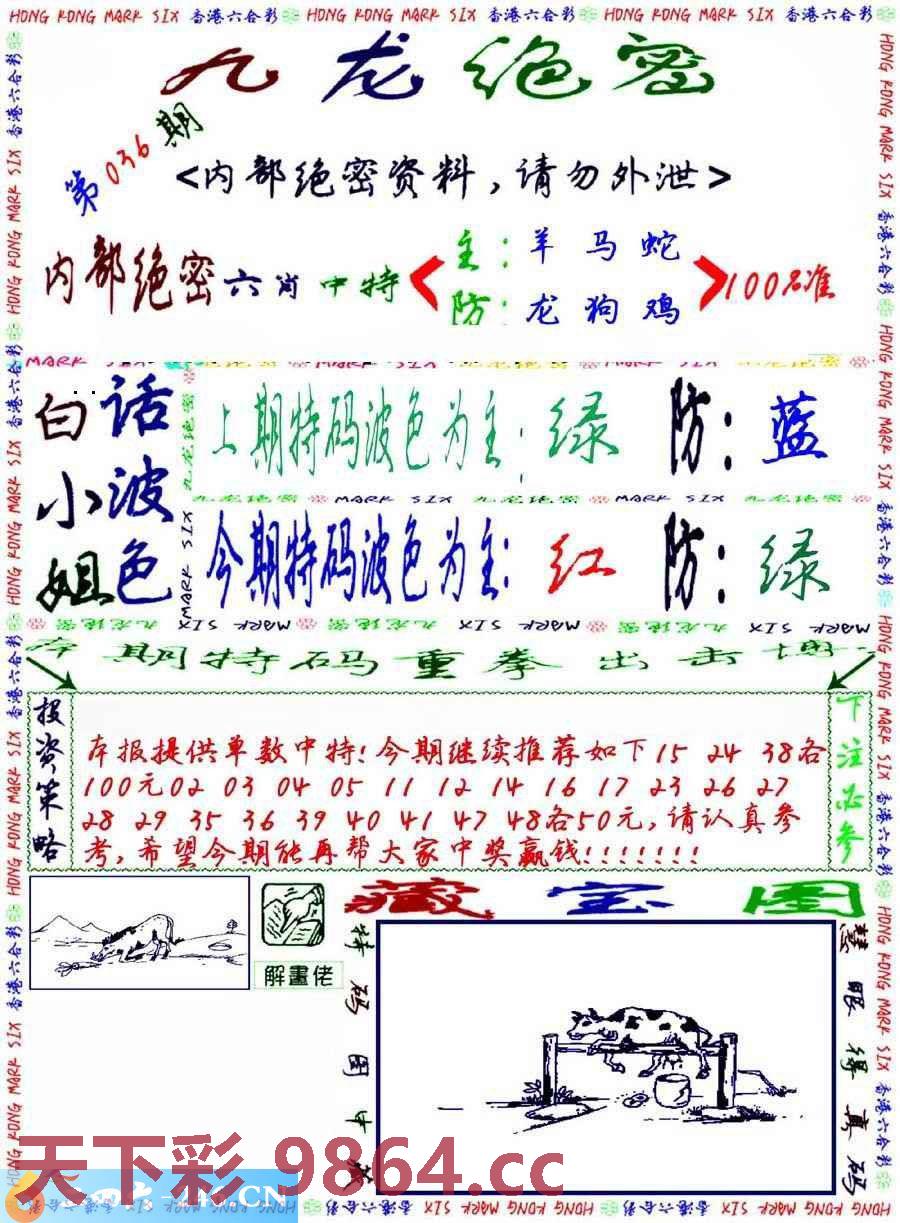 HONG KONG MARK SIX 香港六合彩 HONG KONG MARK SIX 香港六合彩 HONG KONG MARK SIX 香港六合彩
九龙绝密
第036期
<内部绝密资料,请勿外泄>
内部绝密六肖中特
主:羊马蛇
防:龙狗鸡
100%准
白话
小波
姐色
上期特码波色为主:绿 防:蓝
九龙绝密 MARK SIX 九龙绝密 MARK SIX 九龙绝密
今期特码波色为主:红 防:绿
九龙绝密 MARK SIX 九龙绝密 MARK SIX 九龙绝密 MARK SIX
本期特码重拳出击
投资策略
本报提供单数中特!今期继续推荐如下15 24 38各
100元02 03 04 05 11 12 14 16 17 23 26 27
28 29 35 36 39 40 41 47 48各50元,请认真参
考,希望今期能再帮大家中奖赢钱!!!!!!!
下注必参
解畫佬
藏宝图
特码图中藏
慧眼得真码
天下彩.9864.cc
.CN